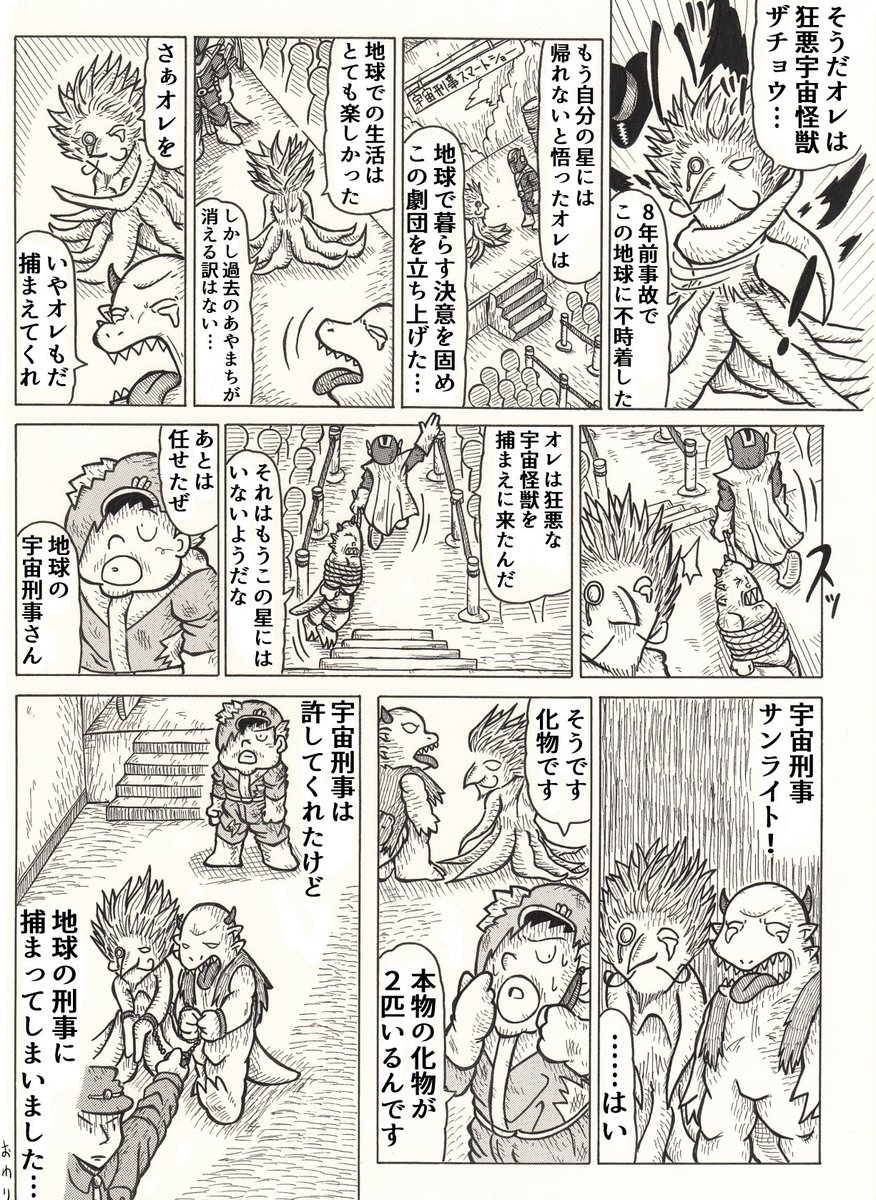 そうだオレは
狂悪宇宙怪獣
ザチョウ…
8年前事故で
この地球に不時着した
！
もう自分の星には
帰れないと悟ったオレは
宇宙刑事スマートショー
地球で暮らす決意を固め
この劇団を立ち上げた…
地球での生活は
とても楽しかった
しかし過去のあやまちが
消える訳はない…
さぁオレを
いやオレもだ
捕まえてくれ
スッ
オレは狂悪な
宇宙怪獣を
捕まえに来たんだ
それはもうこの星には
いないようだな
あとは
任せたぜ
地球の
宇宙刑事さん
宇宙刑事
サンライト！
……はい
そうです
化物です
本物の化物が
2匹いるんです
宇宙刑事は
許してくれたけど
地球の刑事に
捕まってしまいました…
おわり